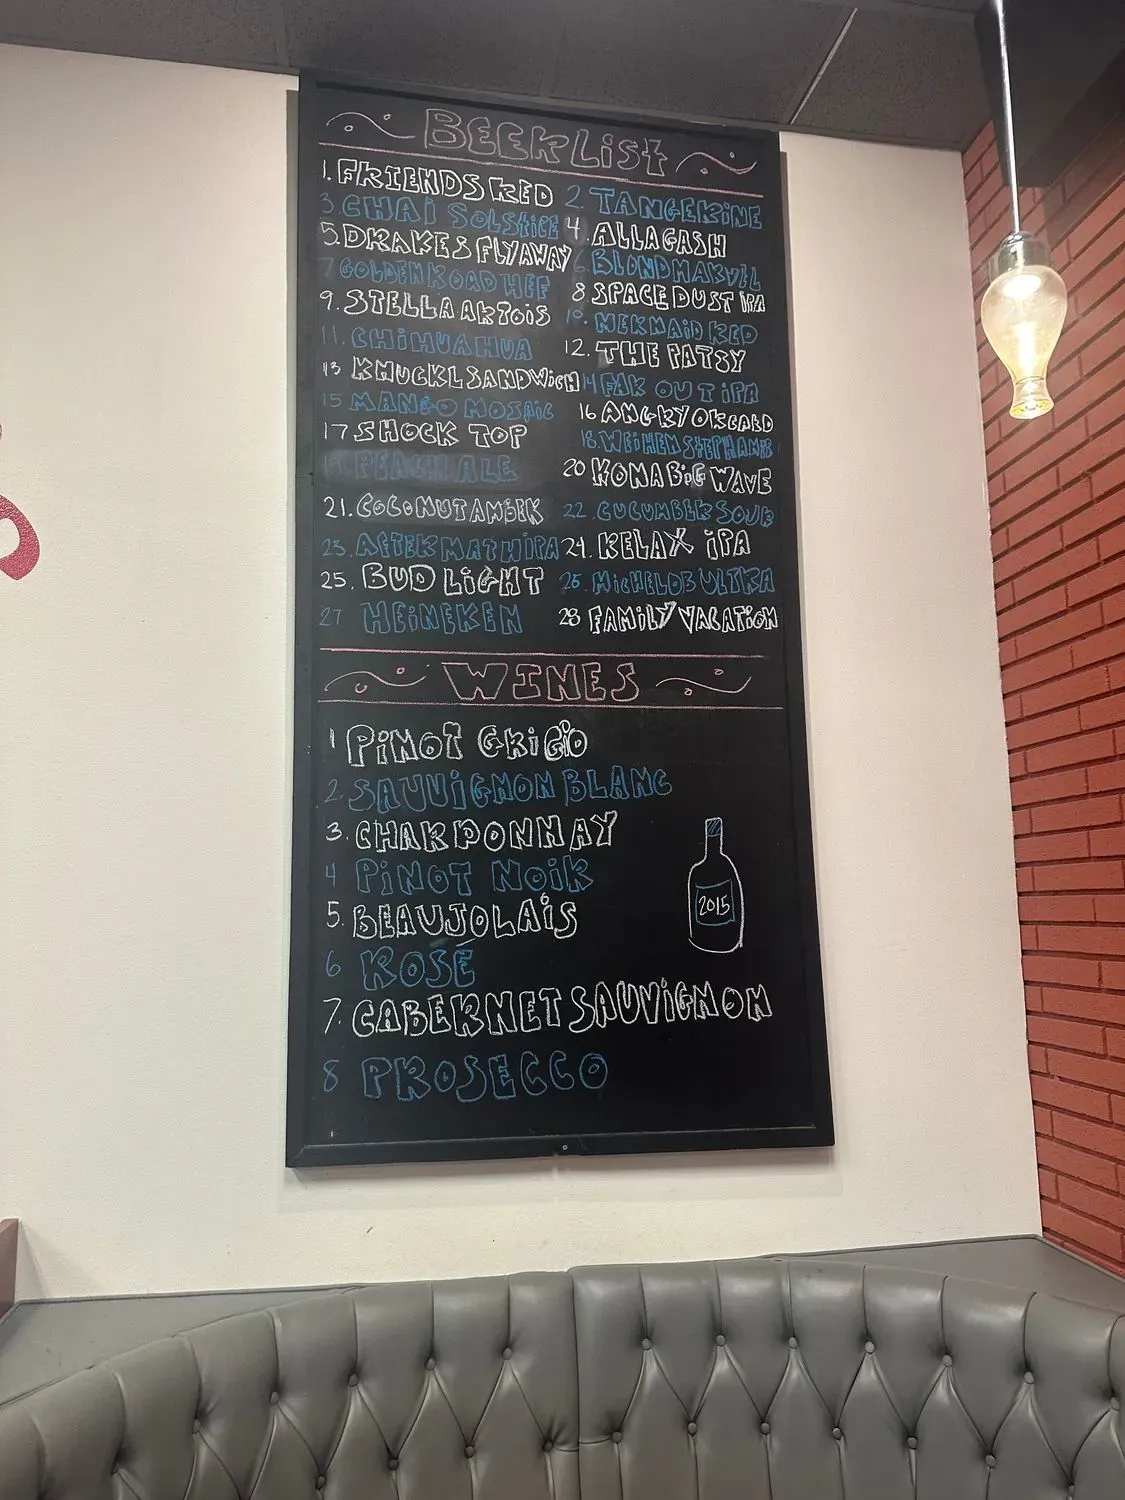 BEER LiSt
1. FRIENDS RED 2. TANGERINE
3. CHAi SOLSTiCE 4. ALLAGASH
5. DRAKES FLYAWAY 6. BLOND MARVEL
7 GOLDEN ROAD HEF 8. SPACE DUST iPA
9. STELLA ARTOiS 10. MERMAiD RED
11. CHiHUAHUA 12. THE PATSY
13 KNUCKL SANDWiCH 14 FAR OUT iPA
15 MANGO MOSAiC 16 ANGRY ORCARD
17 SHOCK TOP 18. WEiHENSTEPHANER
PEACH ALE 20 KONA BiG WAVE
21. COCONUT AMBER 22. CUCUMBER SOUR
23. AFTERMATH iPA 24. RELAX iPA
25. BUD LiGHT 26. MiCHELOB ULTRA
27 HEiNEKEN 28 FAMiLY VACATiON
WINES
1 PiNOT GRiGiO
2. SAUViGNON BLANC
3. CHARDONNAY
4 PiNOT NOiR
5. BEAUJOLAiS
6 ROSÉ
7. CABERNET SAUViGNON
8 PROSECCO
2015